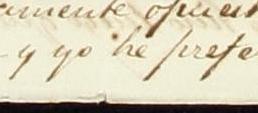 amente opues
- y yo he prefe